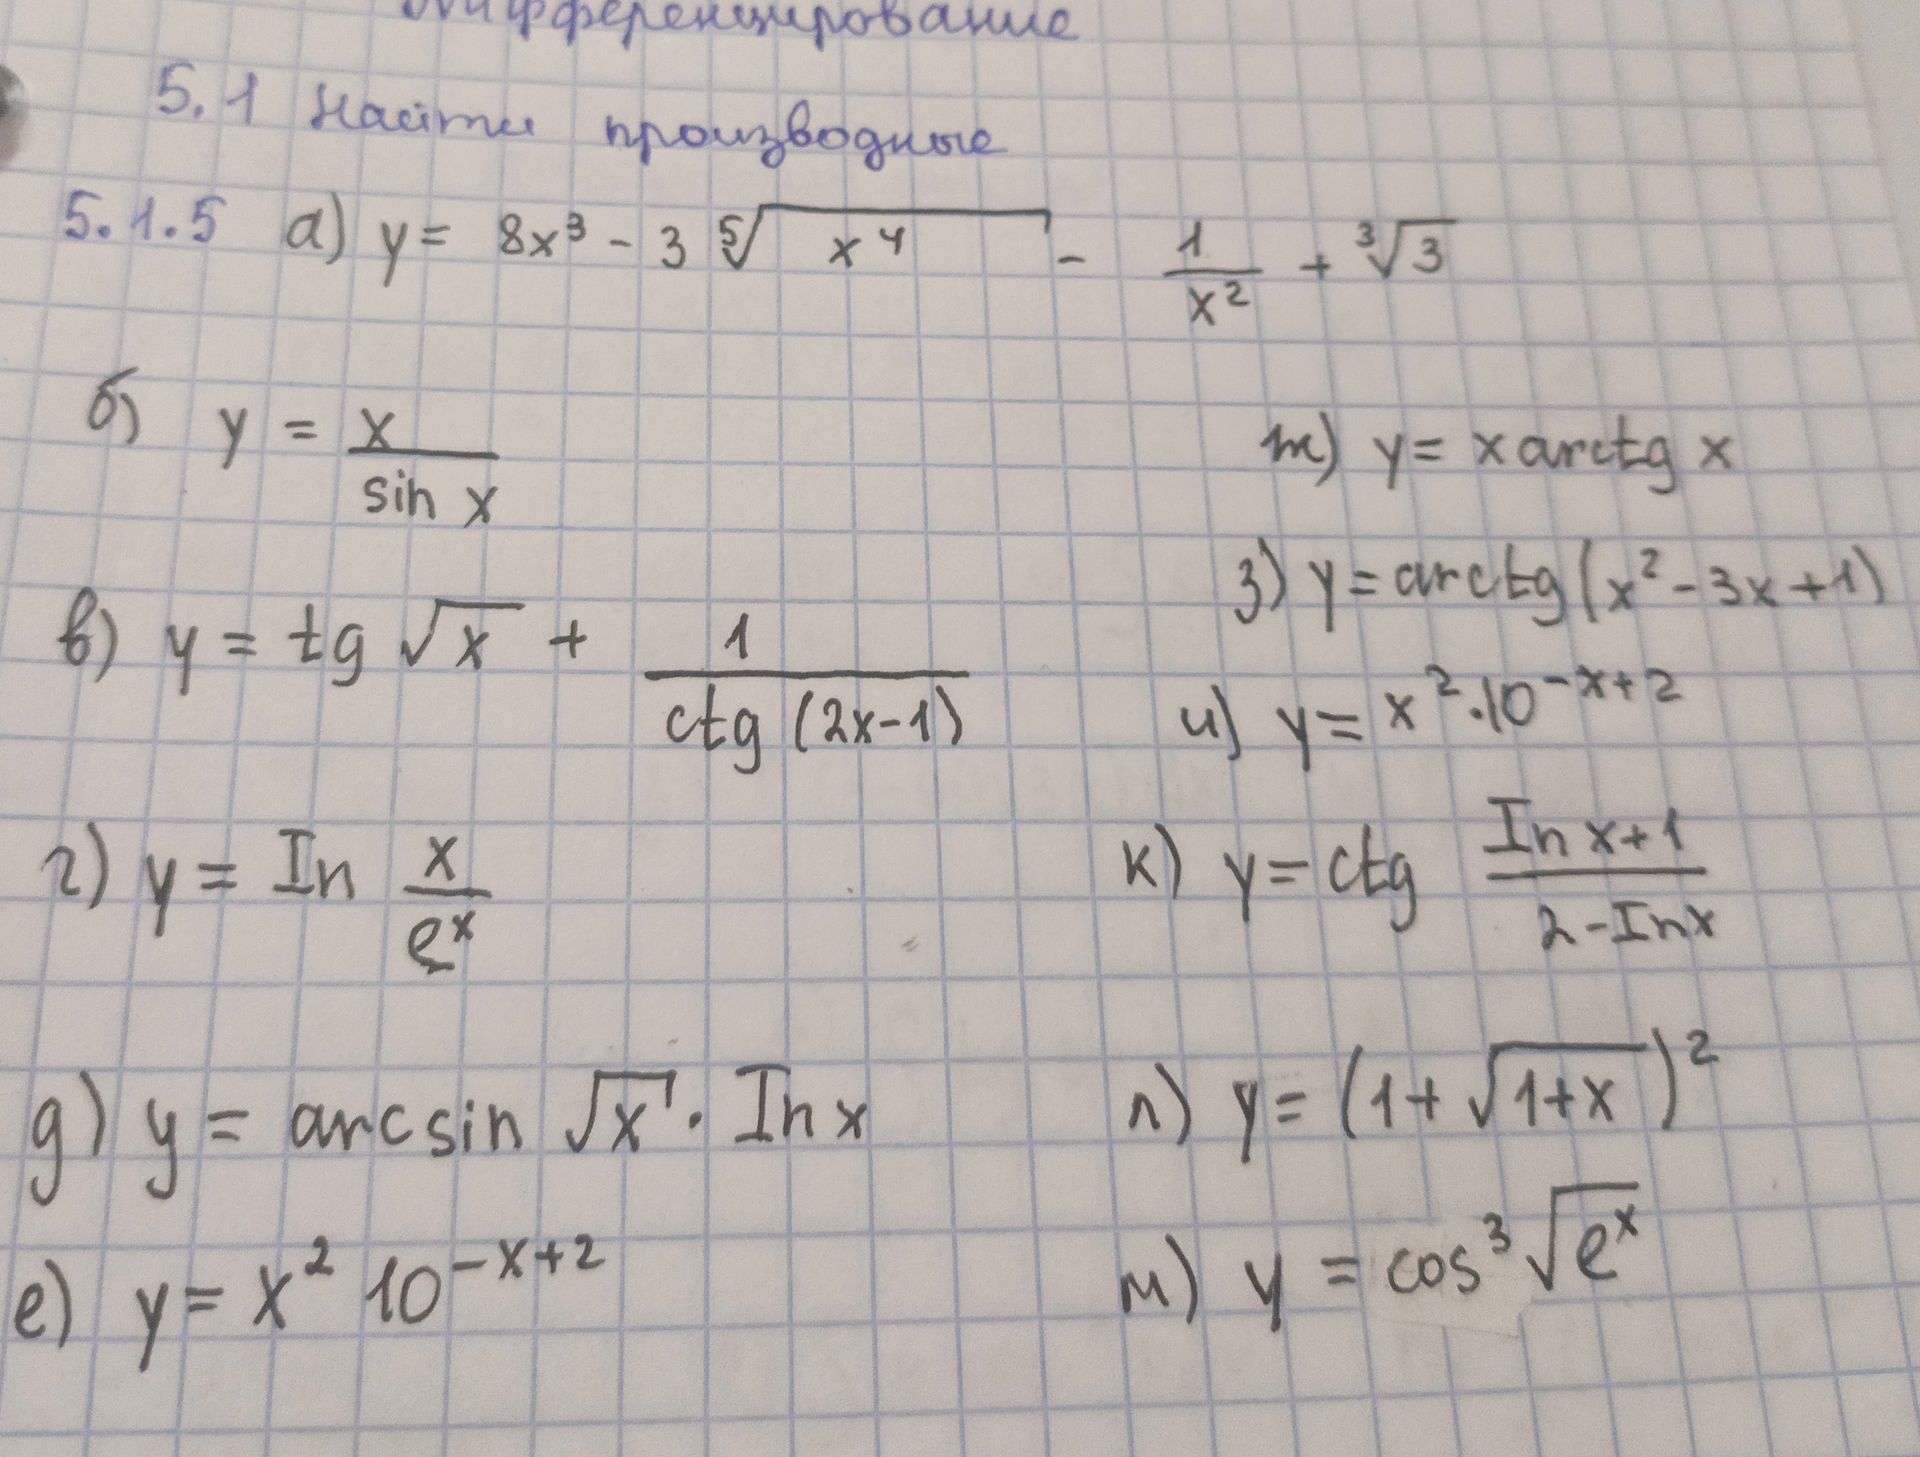 Дифференцирование
5.1 Найти производные
5.1.5 а) y = 8x³ - 3 ⁵√x⁴ - 1/x² + ³√3
б) y = x/sin x
в) y = tg √x + 1/ctg (2x-1)
г) y = In x/eˣ
д) y = arcsin √x · In x
е) y = x² 10⁻ˣ⁺²
ж) y = x arctg x
з) y = arctg (x² - 3x + 1)
и) y = x² · 10⁻ˣ⁺²
к) y = ctg In x+1/2-In x
л) y = (1 + √1+x)²
м) y = cos³ √eˣ